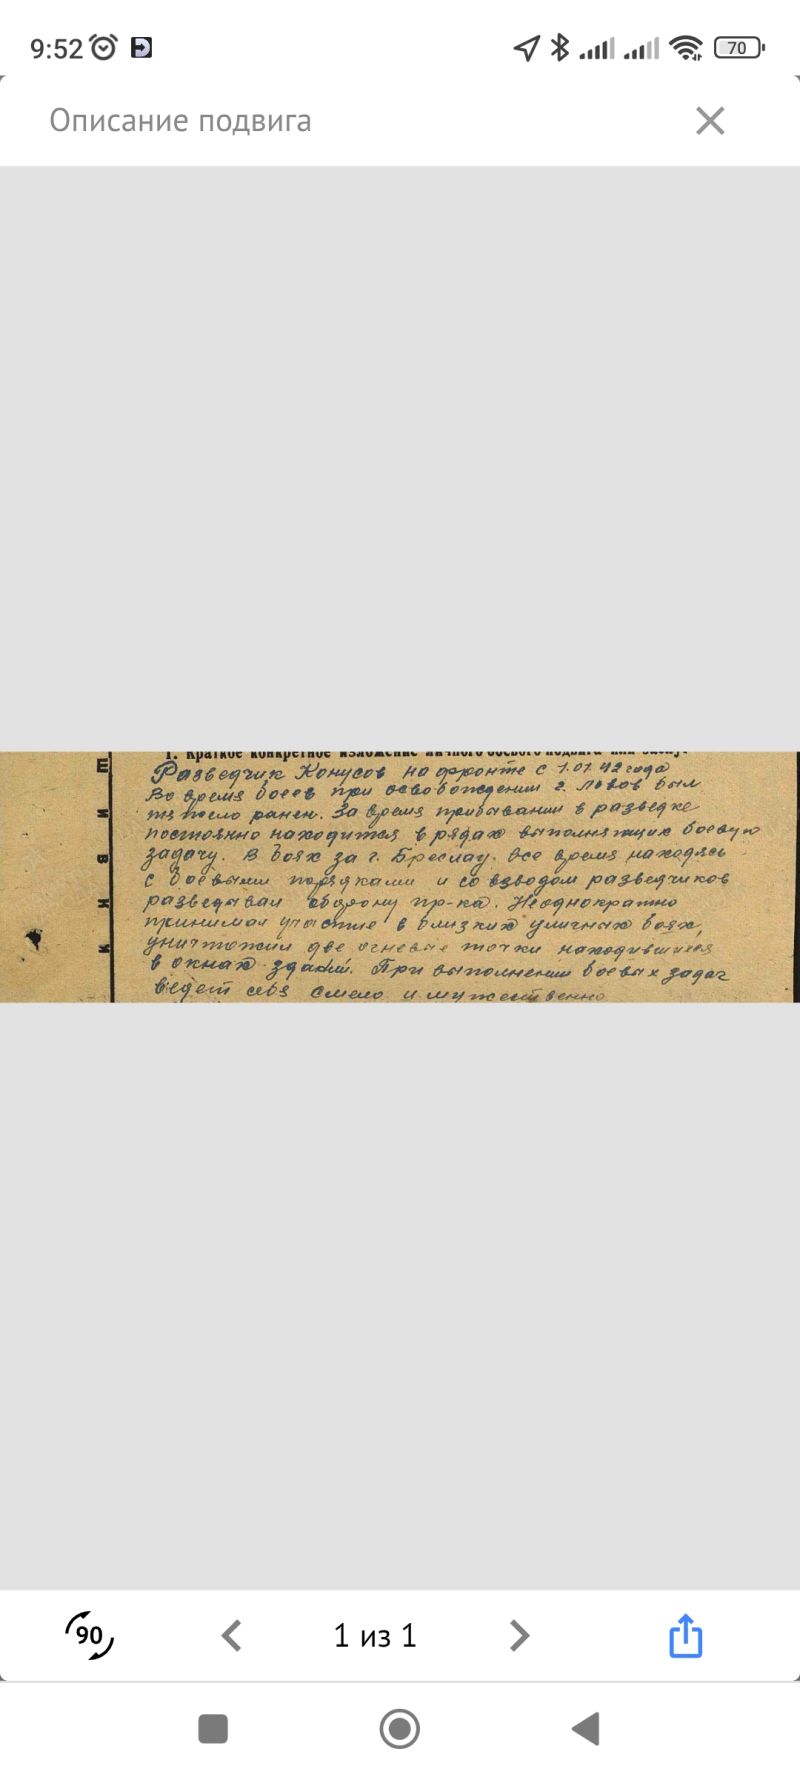 9:52
70
Описание подвига
1. Краткое конкретное изложение личного боевого подвига или заслуг
Разведчик Конусов на фронте с 1.01.42 года
Во время боев при освобождении г. Львов был
тяжело ранен. За время прибывании в разведке
постоянно находится в рядах выполняющих боевую
задачу. В боях за г. Бреслау все время находясь
с боевыми порядками и со взводом разведчиков
разведывал оборону пр-ка. Неоднократно
принимал участие в близких уличных боях,
уничтожил две огневые точки находившихся
в окнах зданий. При выполнении боевых задач
ведет себя смело и мужественно
90
1 из 1